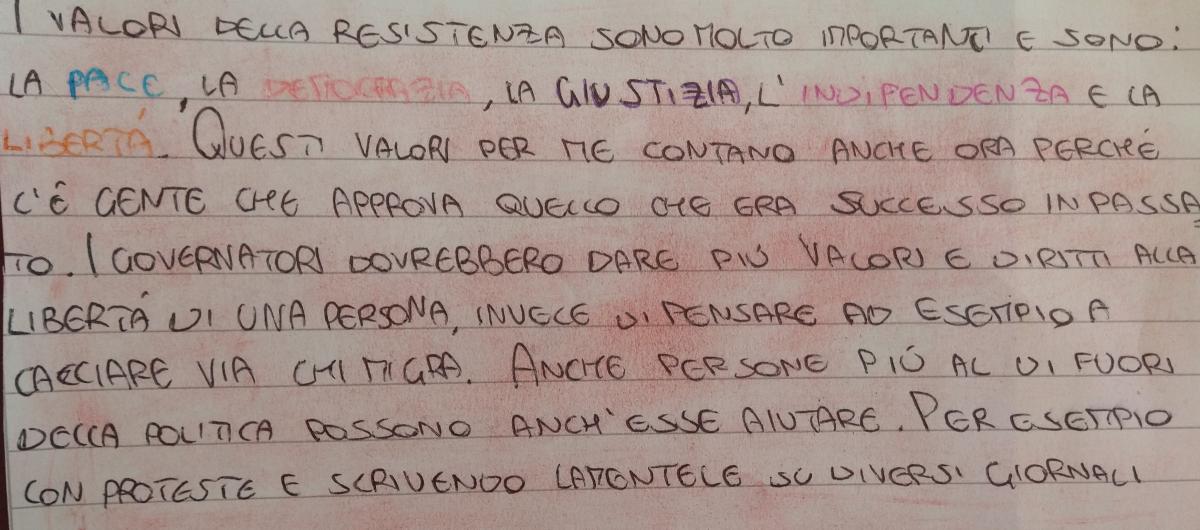 I VALORI DELLA RESISTENZA SONO MOLTO IMPORTANTI E SONO:
LA PACE, LA DEMOCRAZIA, LA GIUSTIZIA, L'INDIPENDENZA E LA
LIBERTÁ. QUESTI VALORI PER ME CONTANO ANCHE ORA PERCHÉ
C'É GENTE CHE APPROVA QUELLO CHE ERA SUCCESSO IN PASSA
TO. I GOVERNATORI DOVREBBERO DARE PIÚ VALORI E DIRITTI ALLA
LIBERTÁ DI UNA PERSONA, INVECE DI PENSARE AD ESEMPIO A
CACCIARE VIA CHI MIGRA. ANCHE PERSONE PIÚ AL DI FUORI
DELLA POLITICA POSSONO ANCH'ESSE AIUTARE. PER ESEMPIO
CON PROTESTE E SCRIVENDO LAMENTELE SU DIVERSI GIORNALI